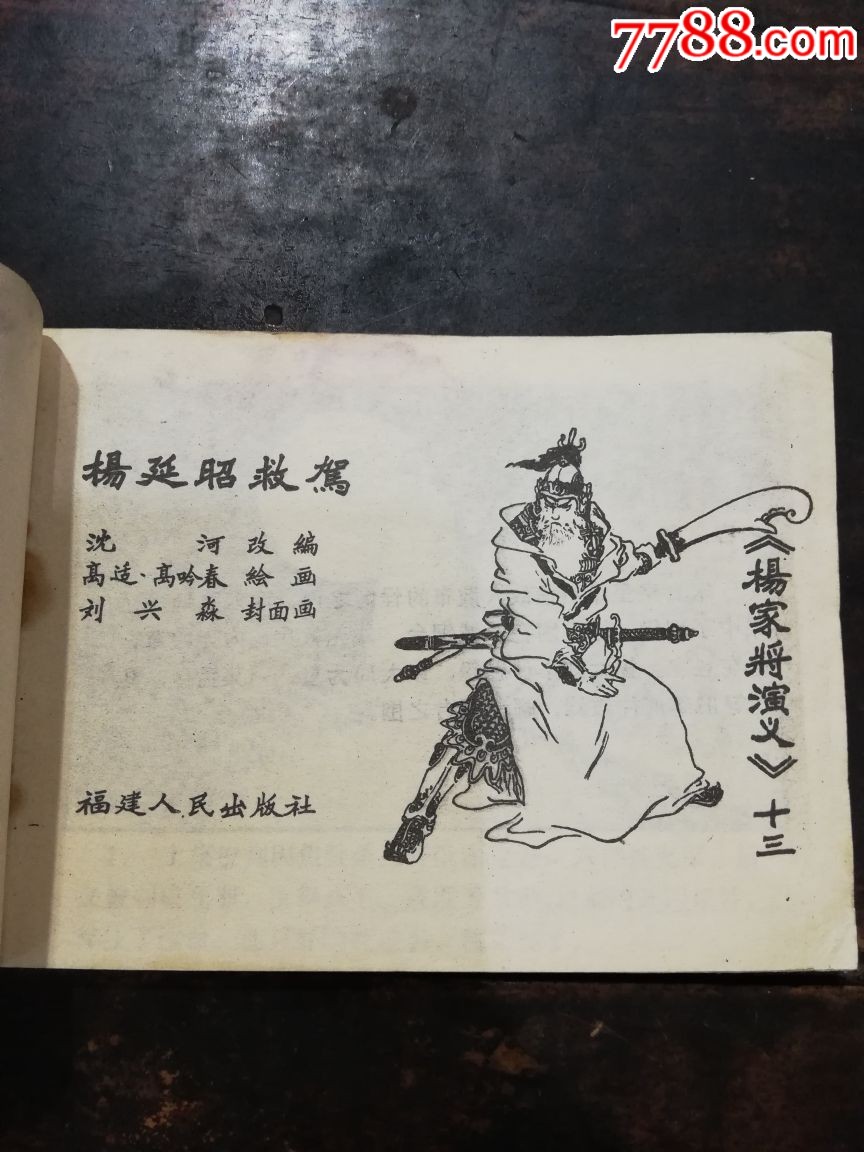 7788.com
楊延昭救駕
沈河改編
高适·高吟春絵画
刘兴淼封面画
福建人民出版社
《楊家將演义》十三